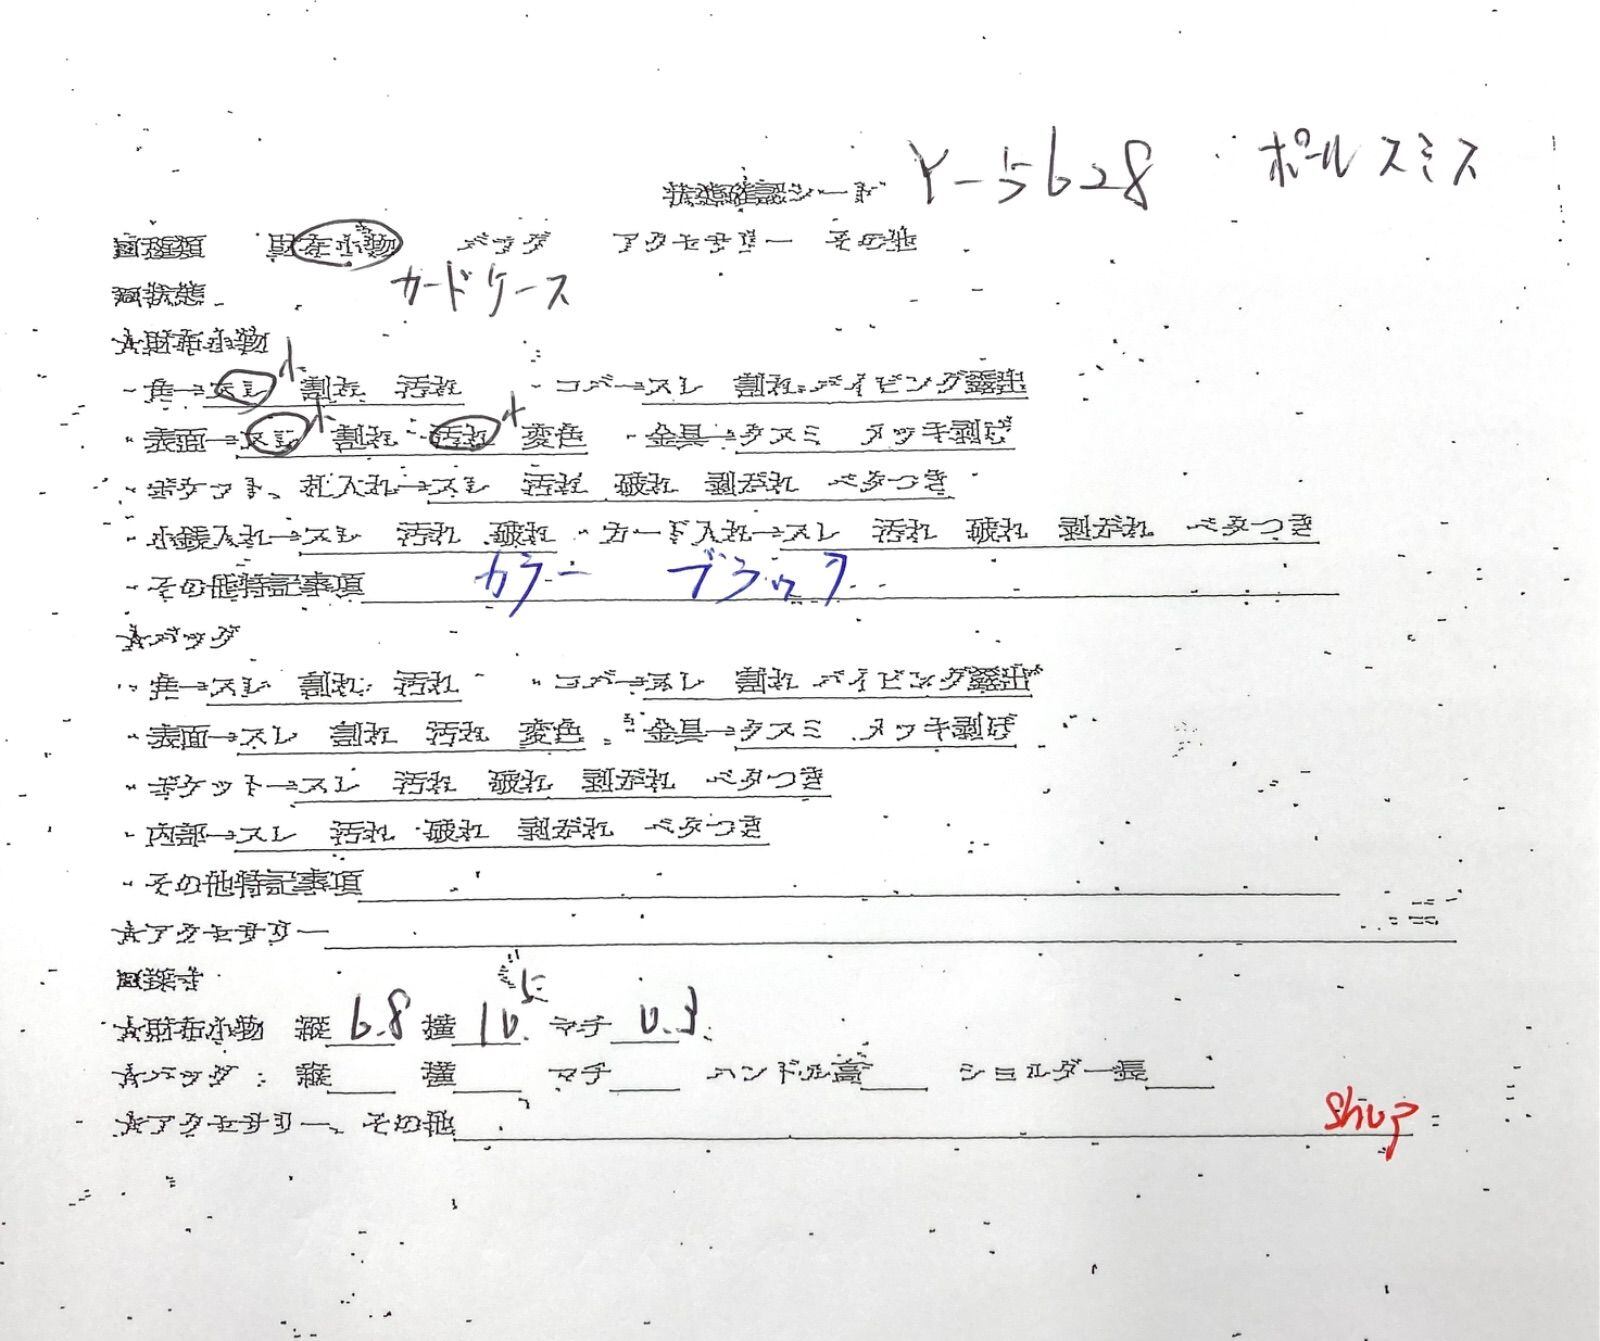 状態確認シート Y-5628 ポールスミス
■種類 財布小物 バッグ アクセサリー その他
■状態 カードケース
★財布小物
・角→スレ 小 割れ 汚れ ・コバ→スレ 割れ パイピング露出
・表面→スレ 小 割れ 汚れ 小 変色 ・金具→クスミ メッキ剥げ
・ポケット、札入れ→スレ 汚れ 破れ 剥がれ ベタつき
・小銭入れ→スレ 汚れ 破れ ・カード入れ→スレ 汚れ 破れ 剥がれ ベタつき
・その他特記事項 カラー ブラック
★バッグ
・角→スレ 割れ 汚れ ・コバ→スレ 割れ パイピング露出
・表面→スレ 割れ 汚れ 変色 ・金具→クスミ メッキ剥げ
・ポケット→スレ 汚れ 破れ 剥がれ ベタつき
・内部→スレ 汚れ 破れ 剥がれ ベタつき
・その他特記事項
★アクセサリー
■採寸
★財布小物 縦 6.8 横 10.5 マチ 0.3
★バッグ 縦 横 マチ ハンドル高 ショルダー長
★アクセサリー、その他
shop